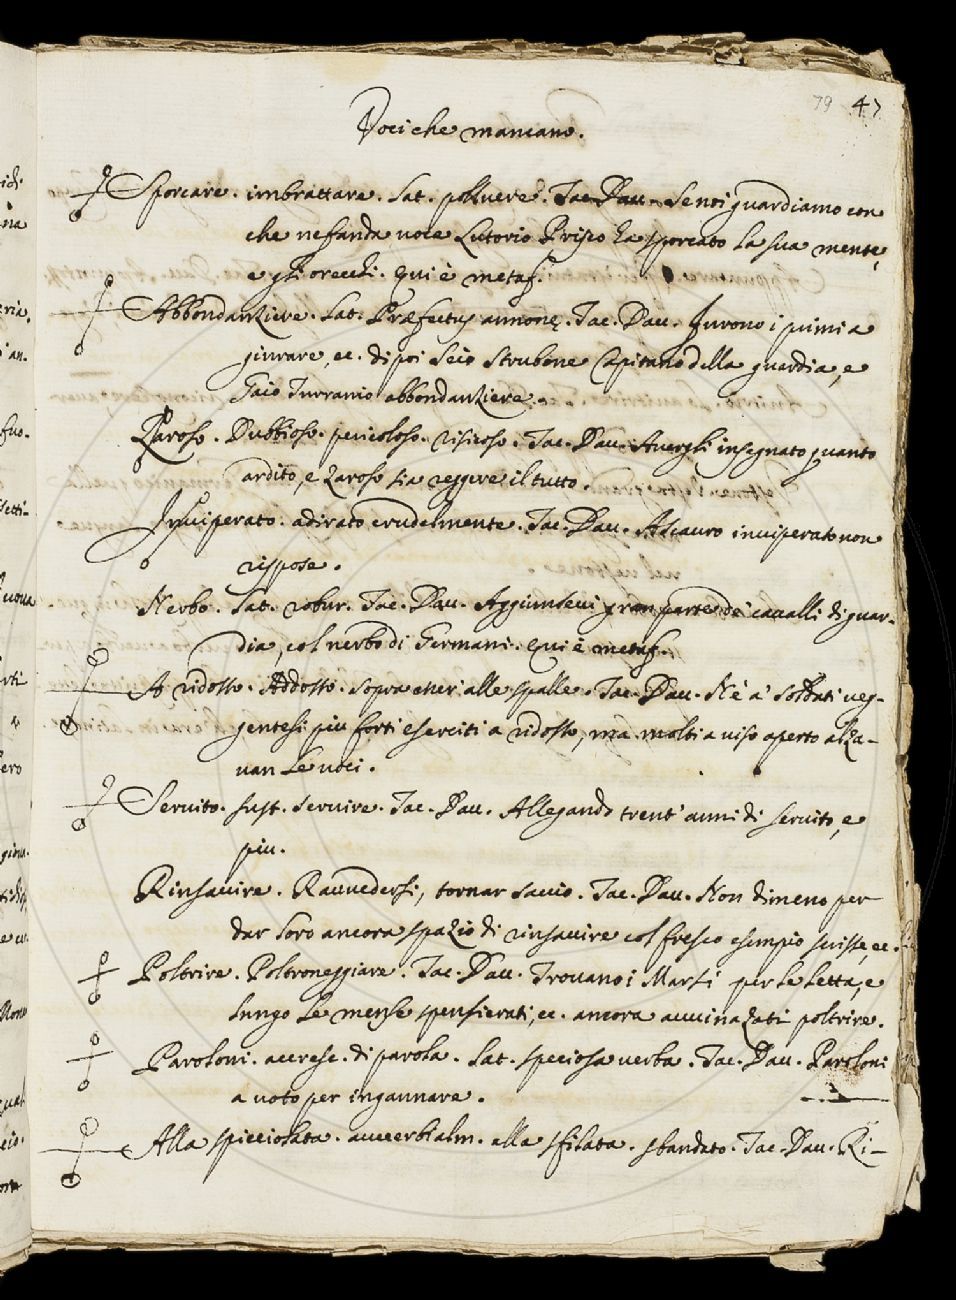 79 47
Voci che mancano.
Sporcare. imbrattare. Lat. polluere. Tac. Dav. Se noi guardiamo con
che nefanda voce Lutorio Prisco ha sporcato la sua mente,
e gli orecchi. Qui è metaf.
Abbondanziere. Lat. Præfectus annonę. Tac. Dav. Furono i primi a
giurare, ec. dipoi Seio Strabone Capitano della guardia, e
Gaio Turranio abbondanziere.
Zaroso. Dubbioso. pericoloso. risicoso. Tac. Dav. Avergli insegnato quanto
ardito, e zaroso sia reggere il tutto.
Inviperato. adirato crudelmente. Tac. Dav. A Scauro inviperato non
rispose.
Nerbo. Lat. robur. Tac. Dav. Aggiuntevi gran parte de' cavalli di guar-
dia, col nerbo di Germani. Qui è metaf.
A ridosso. Addosso. sopra alle spalle. Tac. Dav. Nè a' soldati veg-
gentesi piu forti eserciti a ridosso, ma molti a viso aperto alza-
van le voci.
Servito. sust. servire. Tac. Dav. Allegando trent' anni di servito, e
piu.
Rinsavire. Ravvedersi, tornar savio. Tac. Dav. Non dimeno per
dar loro ancora spazio di rinsavire col fresco esempio scrisse, ec.
Poltrire. Poltroneggiare. Tac. Dav. Trovano i Marsi per le letta, e
lungo le mense spensierati, ec. ancora avvinazati poltrire.
Paroloni. accresc. di parola. Lat. speciosa verba. Tac. Dav. Paroloni
a voto per ingannare.
Alla spicciolata. avverbialm. alla sfilata. sbandato. Tac. Dav. Ri-